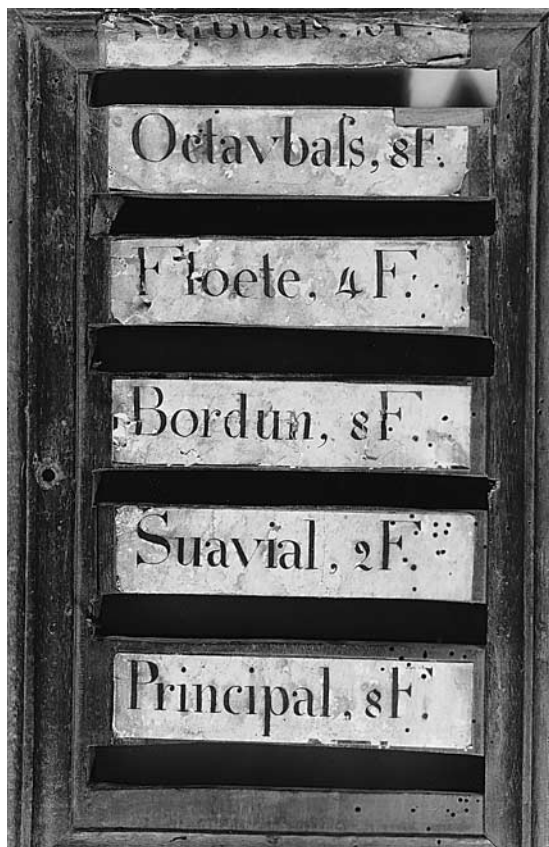 Octavbaſs, 8F.
Floete. 4F.
Bordun, 8F.
Suavial, 2F.
Principal, 8F.